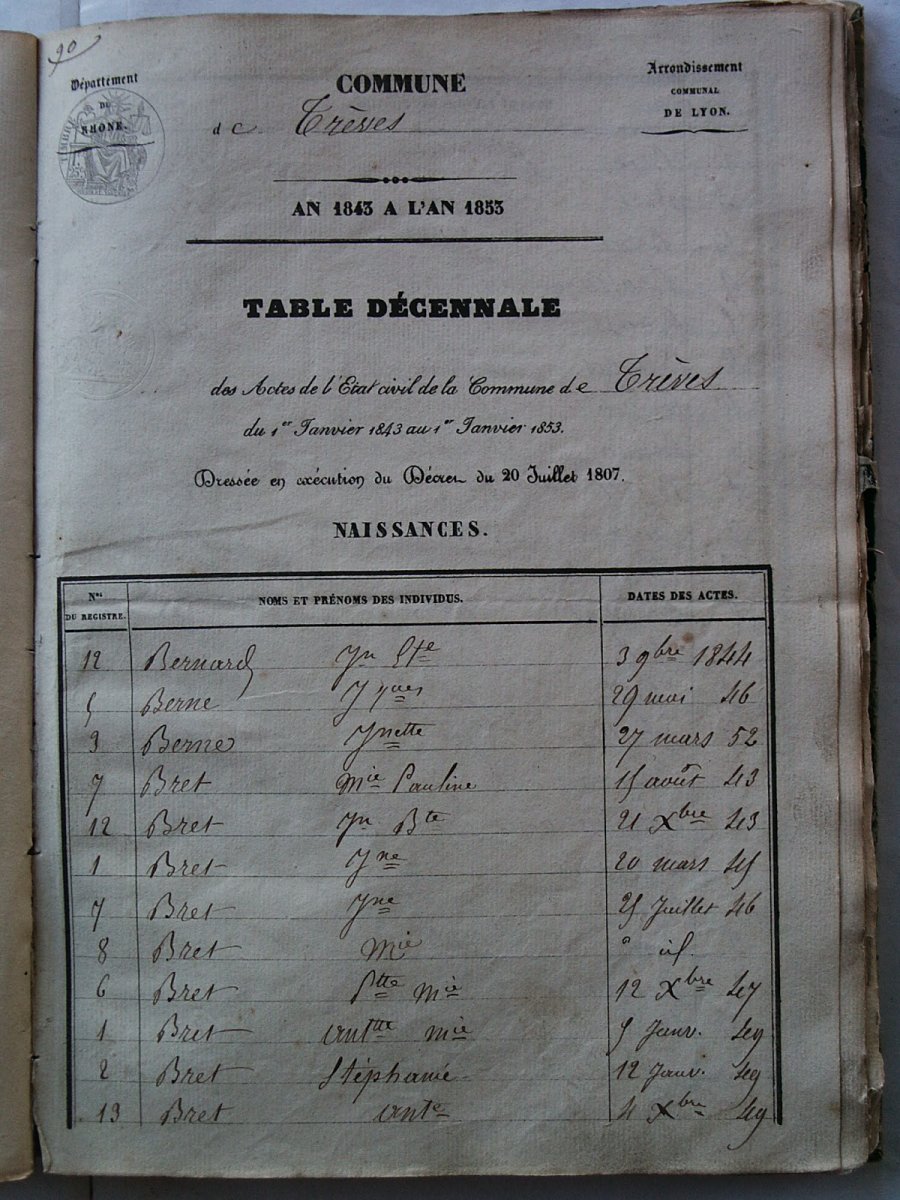 90
Département
DU
RHÔNE.
TIMBRE
COMMUNE
de Trèves
Arrondissement
COMMUNAL
DE LYON.
AN 1843 A L'AN 1853
TABLE DÉCENNALE
des Actes de l'Etat civil de la Commune de Trèves
du 1er Janvier 1843 au 1er Janvier 1853.
Dressée en exécution du Décret du 20 Juillet 1807.
NAISSANCES.
Nos DU REGISTRE. NOMS ET PRÉNOMS DES INDIVIDUS. DATES DES ACTES.
12 Bernard Jn 3 9bre 1844
5 Berne Jques 29 mai 46
3 Berne Jnette 27 mars 52
7 Bret Mie Pauline 15 août 43
12 Bret Jn Bte 21 Xbre 43
1 Bret Jne 20 mars 45
7 Bret Jne 25 Juillet 46
8 Bret Mie " id.
6 Bret Ptte Mie 12 Xbre 47
1 Bret Anttte Mie 5 Janv. 49
2 Bret Stéphanie 12 Janv. 49
13 Bret Ante 4 Xbre 49